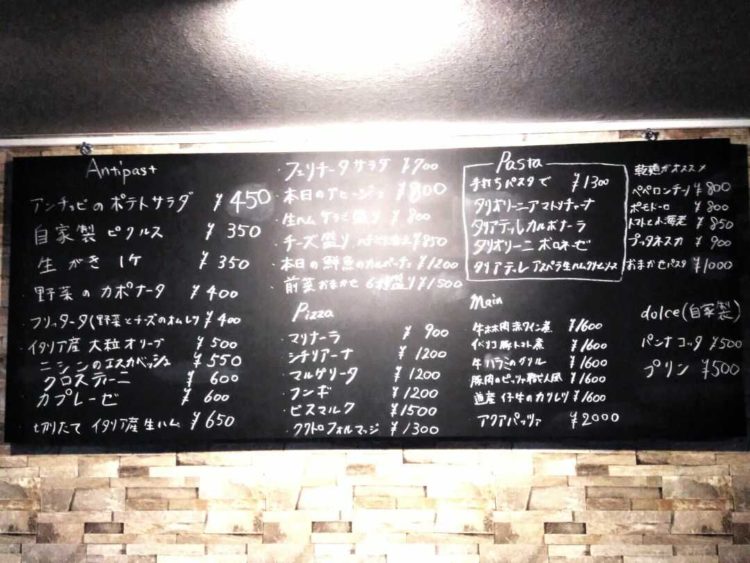 Antipast
アンチョビのポテトサラダ ¥450
自家製ピクルス ¥350
生がき 1ケ ¥350
野菜のカポナータ ¥400
フリッタータ(野菜とチーズのオムレツ ¥400
イタリア産 大粒オリーブ ¥500
ニシンのエスカベッシュ ¥550
クロスティーニ ¥600
カプレーゼ ¥600
切りたて イタリア産生ハム ¥650
フェリチータサラダ ¥700
本日のアヒージョ ¥800
生ハム サラミ盛り ¥800
チーズ盛り ¥850
本日の鮮魚のカルパッチョ ¥1200
前菜おまかせ 6種盛り ¥1500
Pizza
マリナーラ ¥900
シチリアーナ ¥1200
マルゲリータ ¥1200
フンギ ¥1200
ビスマルク ¥1500
クワトロフォルマッジ ¥1300
Pasta
手打ちパスタで ¥1300
タリオリーニアマトリチャーナ
タリアテッレカルボナーラ
タリオリーニ ボロネーゼ
タリアテーレ アスパラ生ハムクリームソース
乾麺がオススメ
ペペロンチーノ ¥800
ポモドーロ ¥800
トマトと小海老 ¥850
プッタネスカ ¥900
おまかせパスタ ¥1000
Main
牛ホホ肉赤ワイン煮 ¥1600
イベリコ豚トマト煮 ¥1600
牛ハラミのグリル ¥1600
豚肉のピッツァ職人風 ¥1600
道産 仔牛のカツレツ ¥1600
アクアパッツァ ¥2000
dolce(自家製)
パンナコッタ ¥500
プリン ¥500